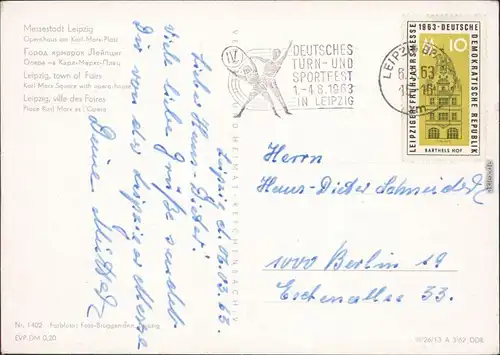 Messestadt Leipzig
Opernhaus am Karl-Marx-Platz
Город ярмарок Лейпциг
Опера на Карл-Маркс-Плац
Leipzig, town of Fairs
Karl Marx Square with opera-house
Leipzig, ville des Foires
Place Karl Marx et l'Opéra
Leipzig, d. 06.03.63
Liebe Hans-Dieter!
Viele liebe Grüße sendet
Dir von der Leipziger Messe
Deine Mutter
Nr. 1402 Farbfoto: Foto-Brüggemann, Leipzig
EVP DM 0,20
VERLAG HEIMAT REICHENBACH
IV.
DEUTSCHES
TURN- UND
SPORTFEST
1.-4.8.1963
IN LEIPZIG
LEIPZIG
63
LEIPZIGER FRÜHJAHRSMESSE
1963 · DEUTSCHE
DEMOKRATISCHE REPUBLIK
10
BARTHELS HOF
Herrn
Hans-Dieter Schneider
1000 Berlin 19
Eschenallee 33.
III/26/13 A 3/62 DDR